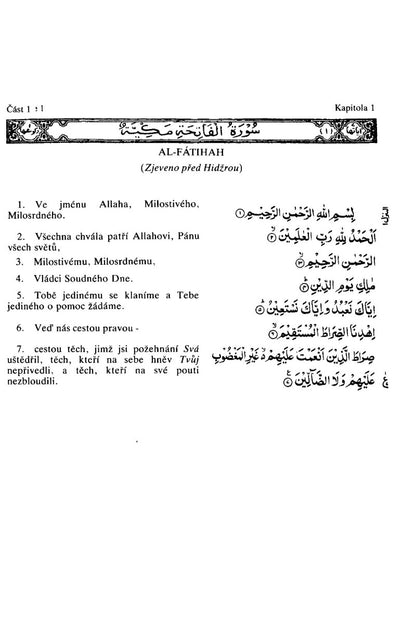 Část 1 : 1
Kapitola 1
سُورَةُ الْفَاتِحَةِ مَكِّيَّةٌ
AL-FÁTIHAH
(Zjeveno před Hidžrou)
1. Ve jménu Allaha, Milostivého,
Milosrdného.
2. Všechna chvála patří Allahovi, Pánu
všech světů,
3. Milostivému, Milosrdnému,
4. Vládci Soudného Dne.
5. Tobě jedinému se klaníme a Tebe
jediného o pomoc žádáme.
6. Veď nás cestou pravou -
7. cestou těch, jimž jsi požehnání Svá
uštědřil, těch, kteří na sebe hněv Tvůj
nepřivedli, a těch, kteří na své pouti
nezbloudili.
بِسْمِ اللهِ الرَّحْمٰنِ الرَّحِيْمِ ١
اَلْحَمْدُ لِلّٰهِ رَبِّ الْعٰلَمِيْنَ ٢
الرَّحْمٰنِ الرَّحِيْمِ ٣
مٰلِكِ يَوْمِ الدِّيْنِ ٤
اِيَّاكَ نَعْبُدُ وَاِيَّاكَ نَسْتَعِيْنُ ٥
اِهْدِنَا الصِّرَاطَ الْمُسْتَقِيْمَ ٦
صِرَاطَ الَّذِيْنَ اَنْعَمْتَ عَلَيْهِمْ غَيْرِ الْمَغْضُوْبِ
عَلَيْهِمْ وَلَا الضَّآلِّيْنَ ٧